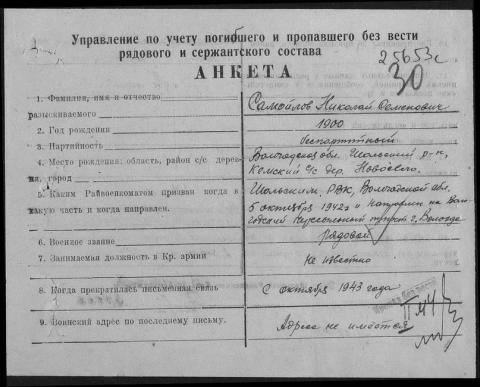 Управление по учету погибшего и пропавшего без вести
рядового и сержантского состава
25653с
АНКЕТА
30
1. Фамилия, имя и отчество
разыскиваемого
Самойлов Николай Семенович
2. Год рождения
1900
3. Партийность
беспартийный
4. Место рождения: область, район с/с дерев-
ня, город
Вологодская обл. Шольский р-н,
Кемский с/с дер. Новосело
5. Каким Райвоенкоматом призван когда в
какую часть и когда направлен.
Шольским РВК, Вологодской обл.
5 октября 1942г и направлен на Воло-
годский пересыльный пункт г. Вологда
6. Военное звание
рядовой
7. Занимаемая должность в Кр. армии
Не известно
8. Когда прекратилась письменная связь
С октября 1943 года
9. Воинский адрес по последнему письму.
Адреса не имеется